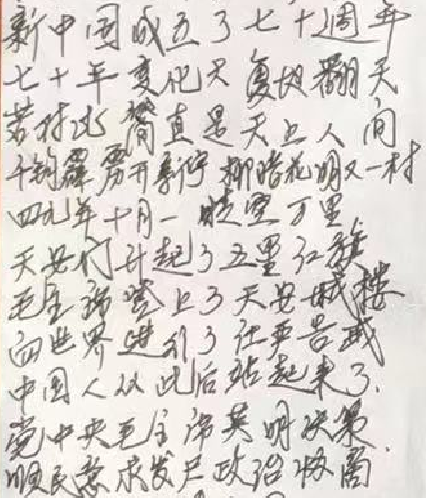 新中国成立了七十週年
七十年变化天复地翻天
若对比简直是天上人间
千钧霹雳开新宇柳暗花明又一村
四九年十月一晴空万里
天安门升起了五星红旗
毛主席登上了天安城楼
向世界进行了庄严告诫
中国人从此后站起来了.
党中央毛主席英明决策
顺民意求发展政治协商